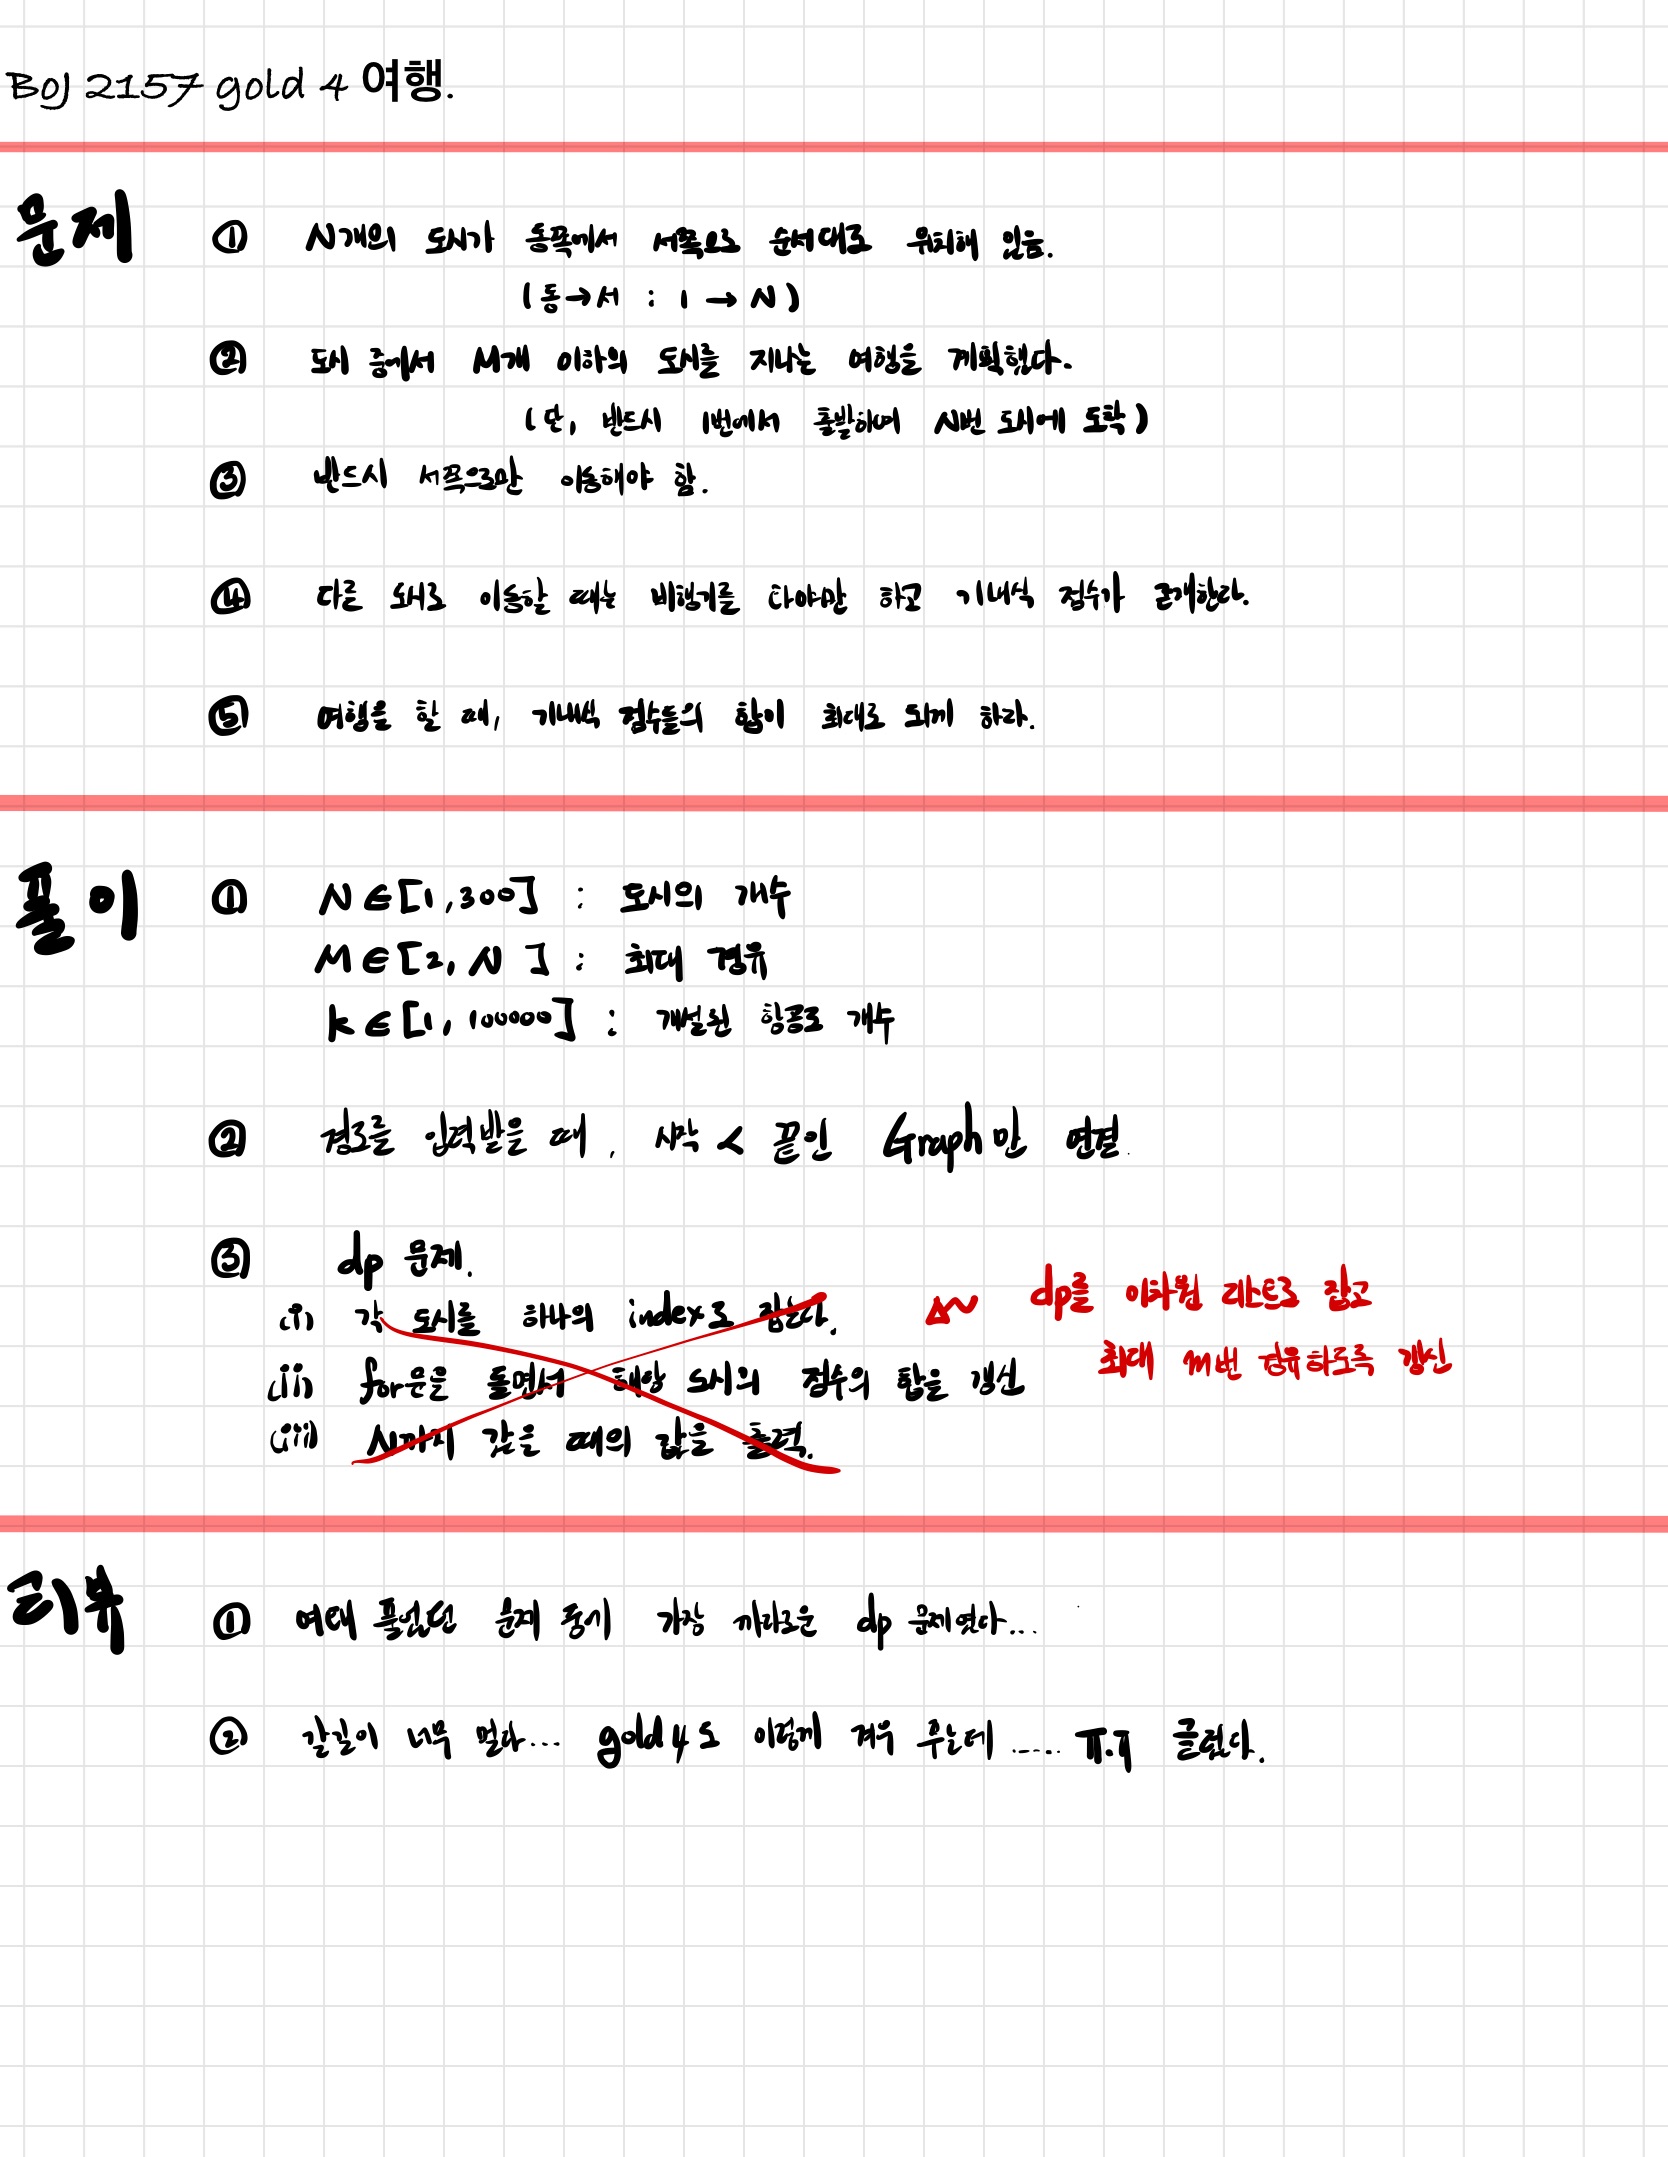 BOJ 2157 gold 4 여행.
문제
① N개의 도시가 동쪽에서 서쪽으로 순서대로 위치해 있음.
(동→서 : 1 → N)
② 도시 중에서 M개 이하의 도시를 지나는 여행을 계획했다.
(단, 반드시 1번에서 출발하여 N번 도시에 도착)
③ 반드시 서쪽으로만 이동해야 함.
④ 다른 도시로 이동할 때는 비행기를 타야만 하고 기내식 점수가 존재한다.
⑤ 여행을 할 때, 기내식 점수들의 합이 최대로 되게 하라.
풀이
① N∈[1,300] : 도시의 개수
M∈[2, N] : 최대 경유
k∈[1, 100000] : 개설된 항공로 개수
② 경로를 입력받을 때, 시작 < 끝인 Graph만 연결.
③ dp 문제.
(i) 각 도시를 하나의 index로 잡는다.
dp를 이차원 리스트로 잡고
(ii) for문을 돌면서 해당 도시의 점수의 합을 갱신
최대 m번 경유하도록 갱신
(iii) N까지 갔을 때의 값을 출력.
리뷰
① 여태 풀었던 문제 중에 가장 까다로운 dp 문제였다...
② 갈길이 너무 멀다... gold 4도 이렇게 겨우 푸는데 ..... ㅠ.ㅠ 글렀다.